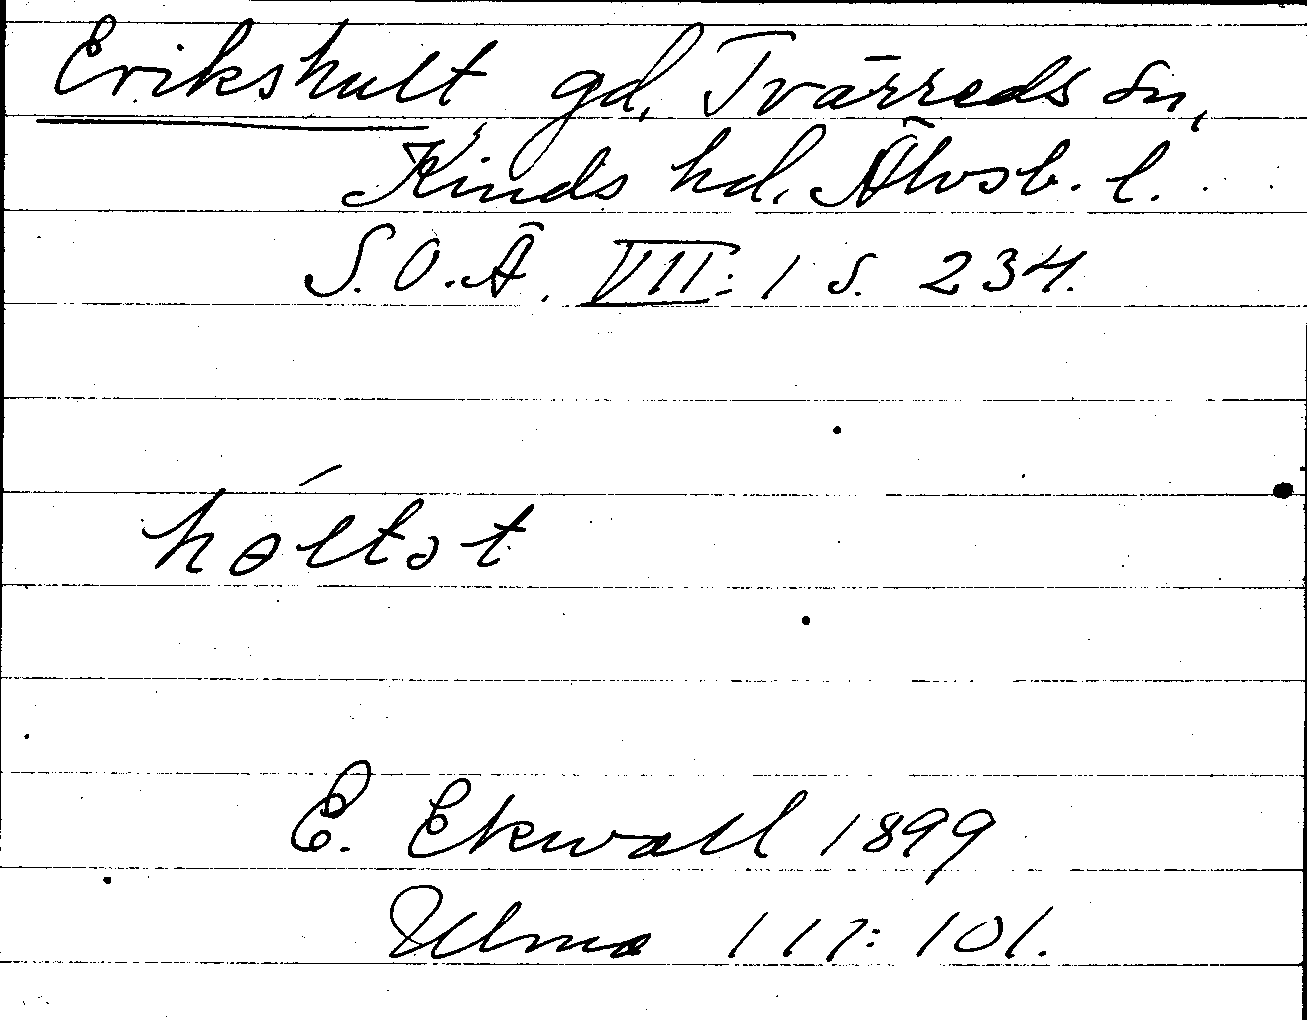 Erikshult, gd, Tvärreds sn,
Kinds hd. Älvsb. l.
S.O.Ä. VII: 1 s. 234.
hǿltət
E. Ekwall 1899
Ulma 117: 101.